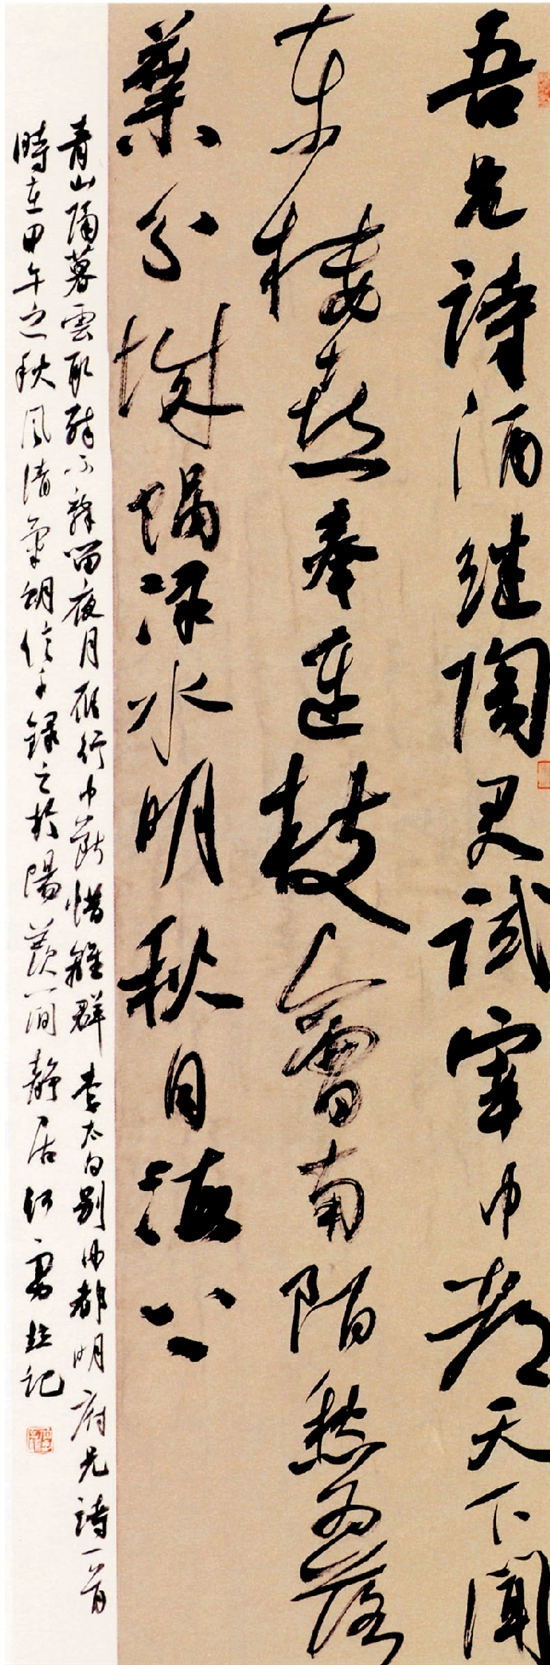 吾兄詩酒继陶君試宰中都天下聞
东楼喜奉连枝會南陌愁为落
葉分城隅渌水明秋日海上
青山隔暮雲取醉不辞留夜月雁行中断惜離群 李太白别中都明府兄詩一首
時在甲午之秋風清氣朗信手録之於陽羡一间静居 记